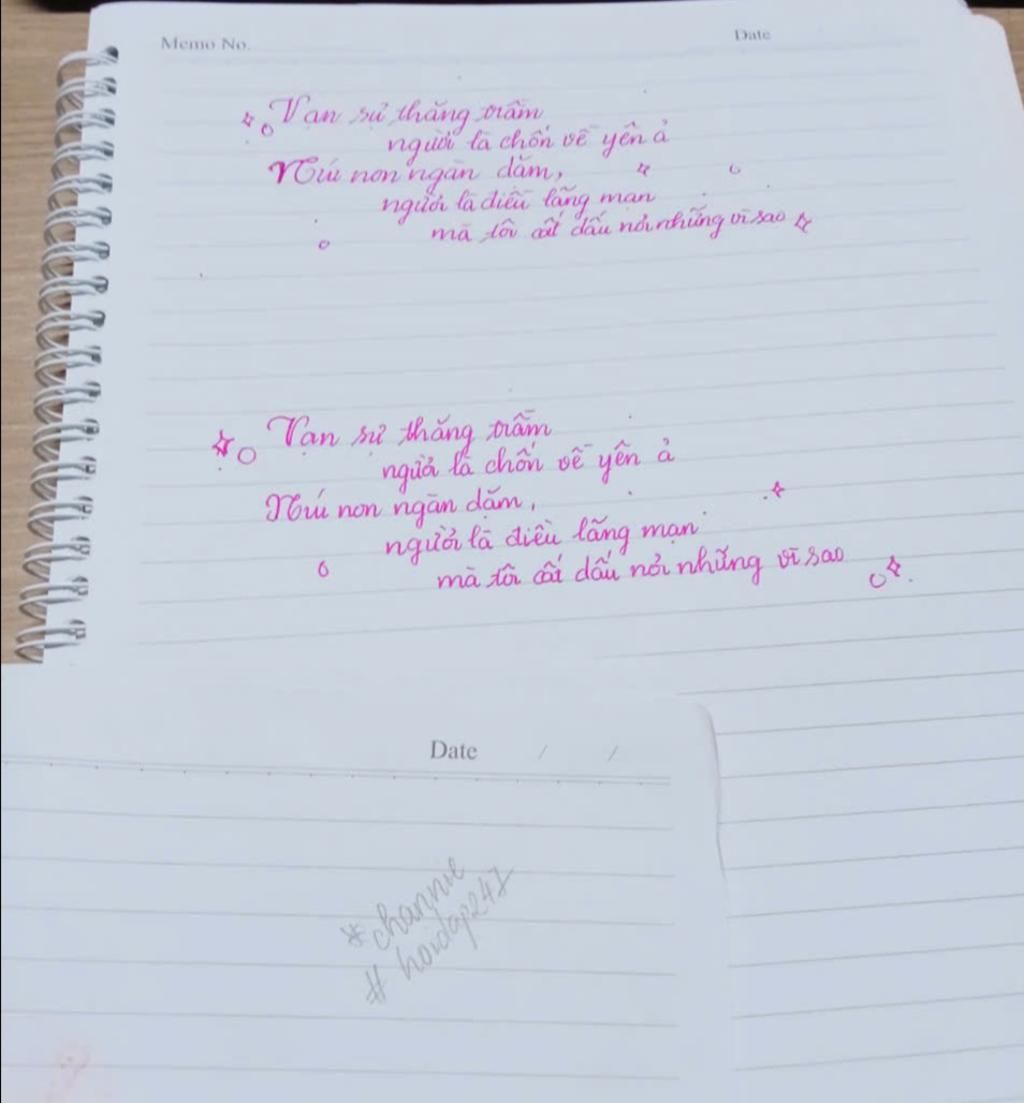 Memo No.
Date
Vạn sự thăng trầm
người là chốn về yên ả
Núi non ngàn dặm,
người là điều lãng mạn
mà tôi cất dấu nơi những vì sao
Vạn sự thăng trầm
người là chốn về yên ả
Núi non ngàn dặm,
người là điều lãng mạn
mà tôi cất dấu nơi những vì sao
Date / /
#channie
#hoidap247